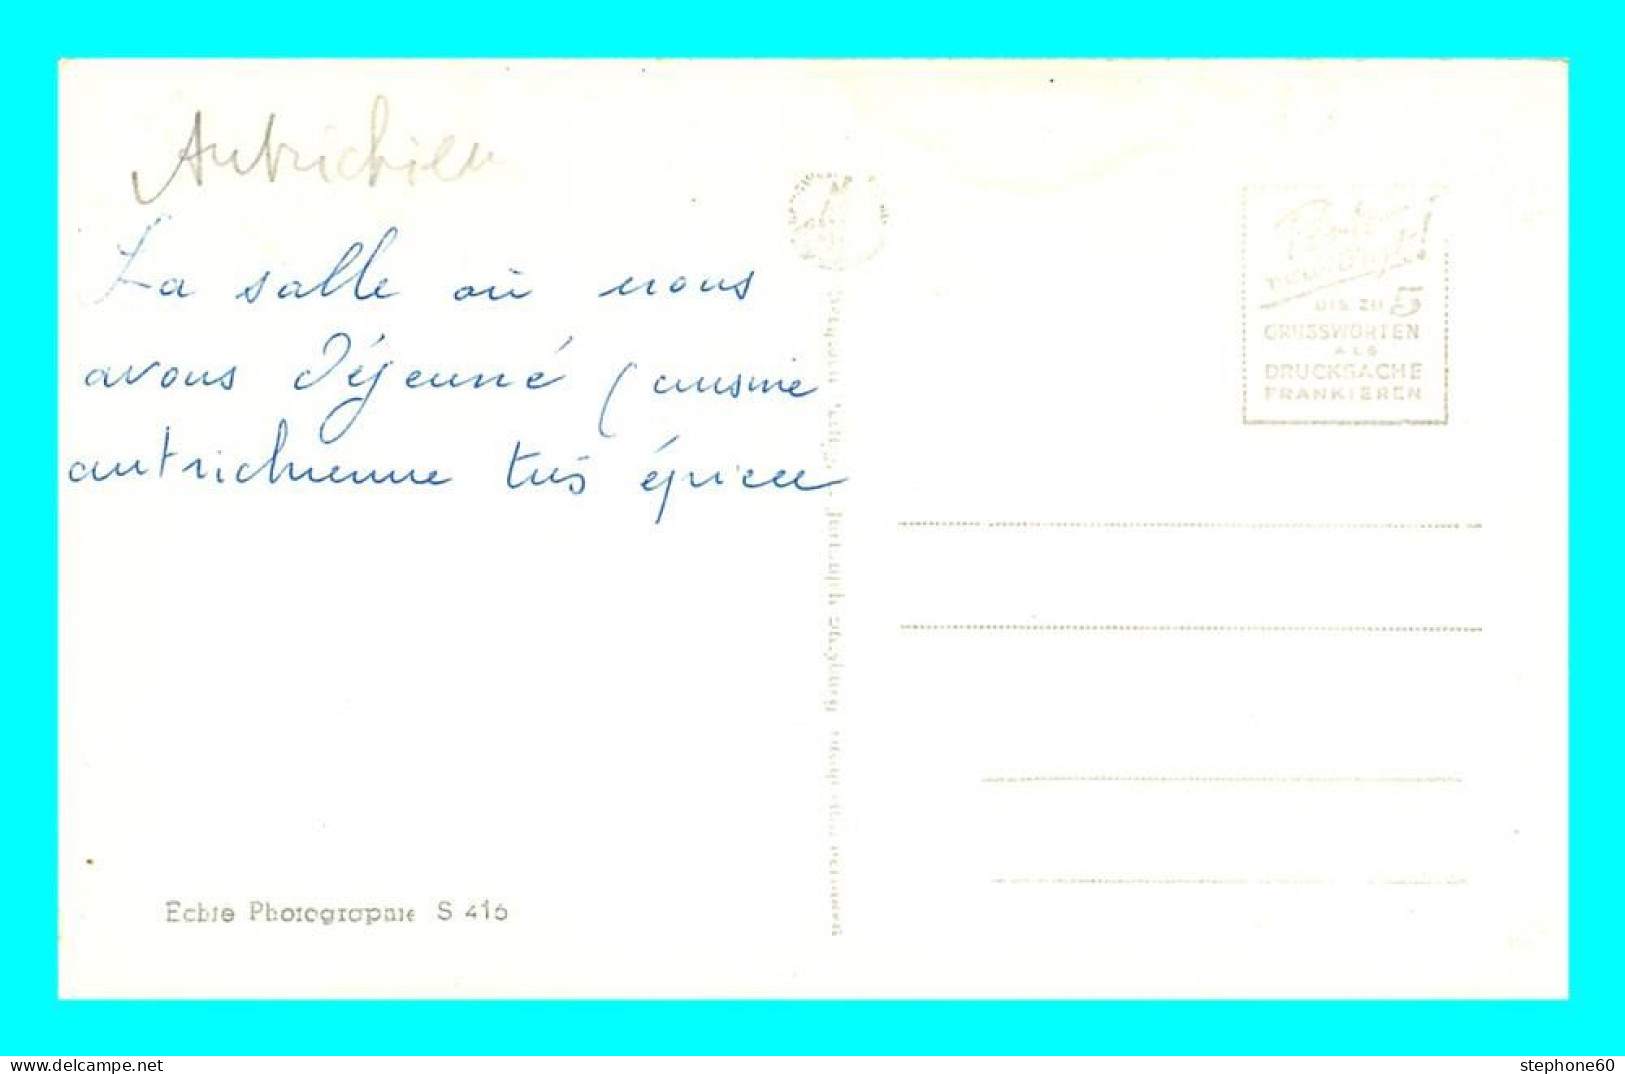 Autrichien
La salle où nous
avons Déjeuné (cuisine
autrichienne très épicée
BIS ZU 5
GRUSSWORTEN
ALS
DRUCKSACHE
FRANKIEREN
Echte Photographie S 416
delcampe.net
stephone60